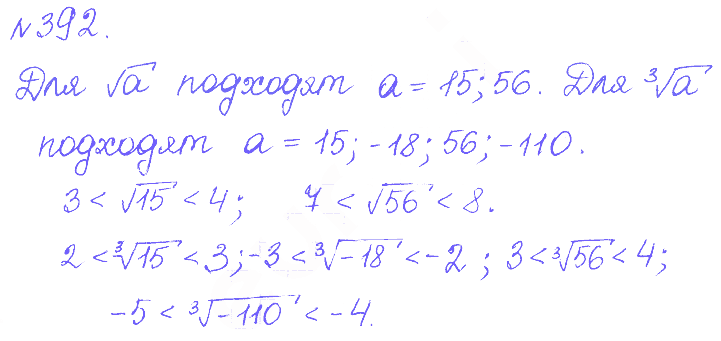 №392.
Для √a подходят a = 15; 56. Для ∛a
подходят a = 15; -18; 56; -110.
3 < √15 < 4; 7 < √56 < 8.
2 < ∛15 < 3; -3 < ∛-18 < -2; 3 < ∛56 < 4;
-5 < ∛-110 < -4.